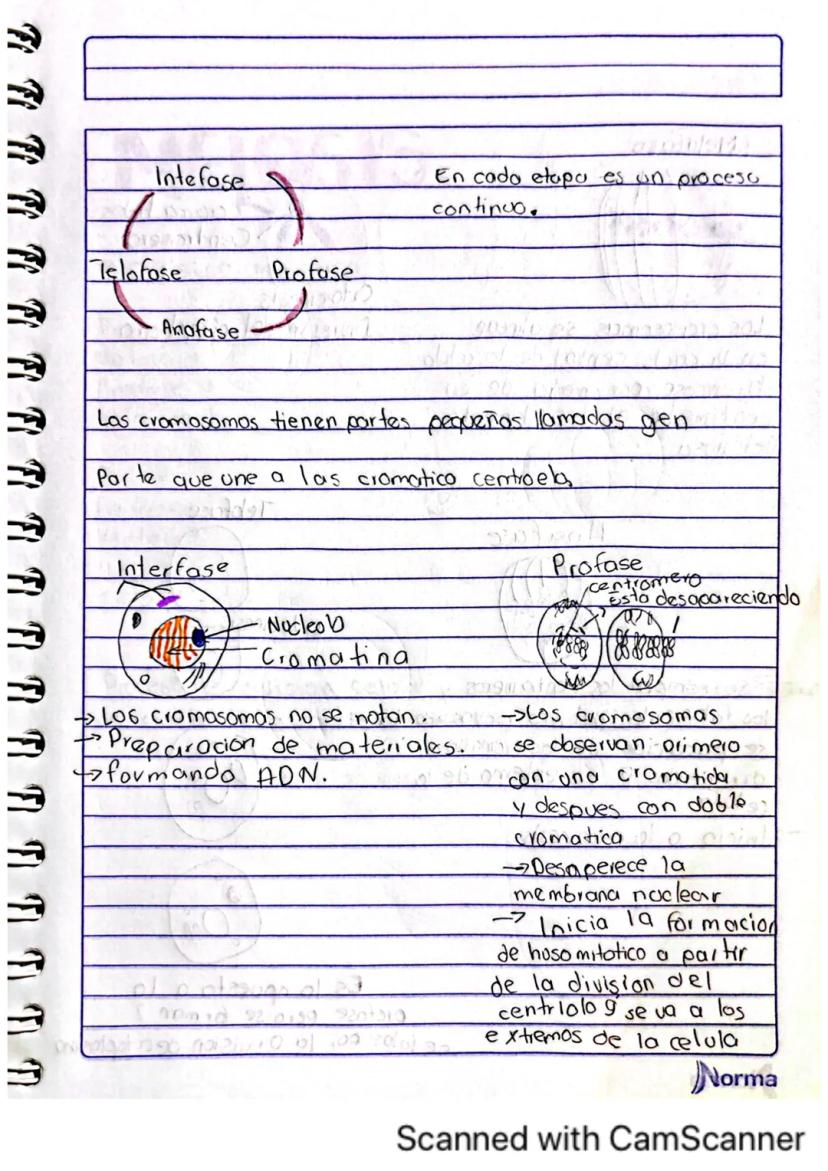 Intefase
En cada etapa es un proceso
continuo.
Telofase
Profase
Anafase
Los cromosomos tienen partes pequeños llamados gen
Parte que une a las cromatico
Interfase
Profase
centromero
Esta desapareciendo
Nucleolo
Cromatina
→ Los cromosomos no se notan
→ Preparacion de materiales.
→ formando ADN.
→ Los cromosomas
se observan primero
con una cromatida
y despues con doble
cromatica
→ Desaperece la
membrana nuclear
→ Inicia la formacion
de huso mitotico a partir
de la division del
centriolo y se va a los
extremos de la celula
Norma
Scanned with CamScanner